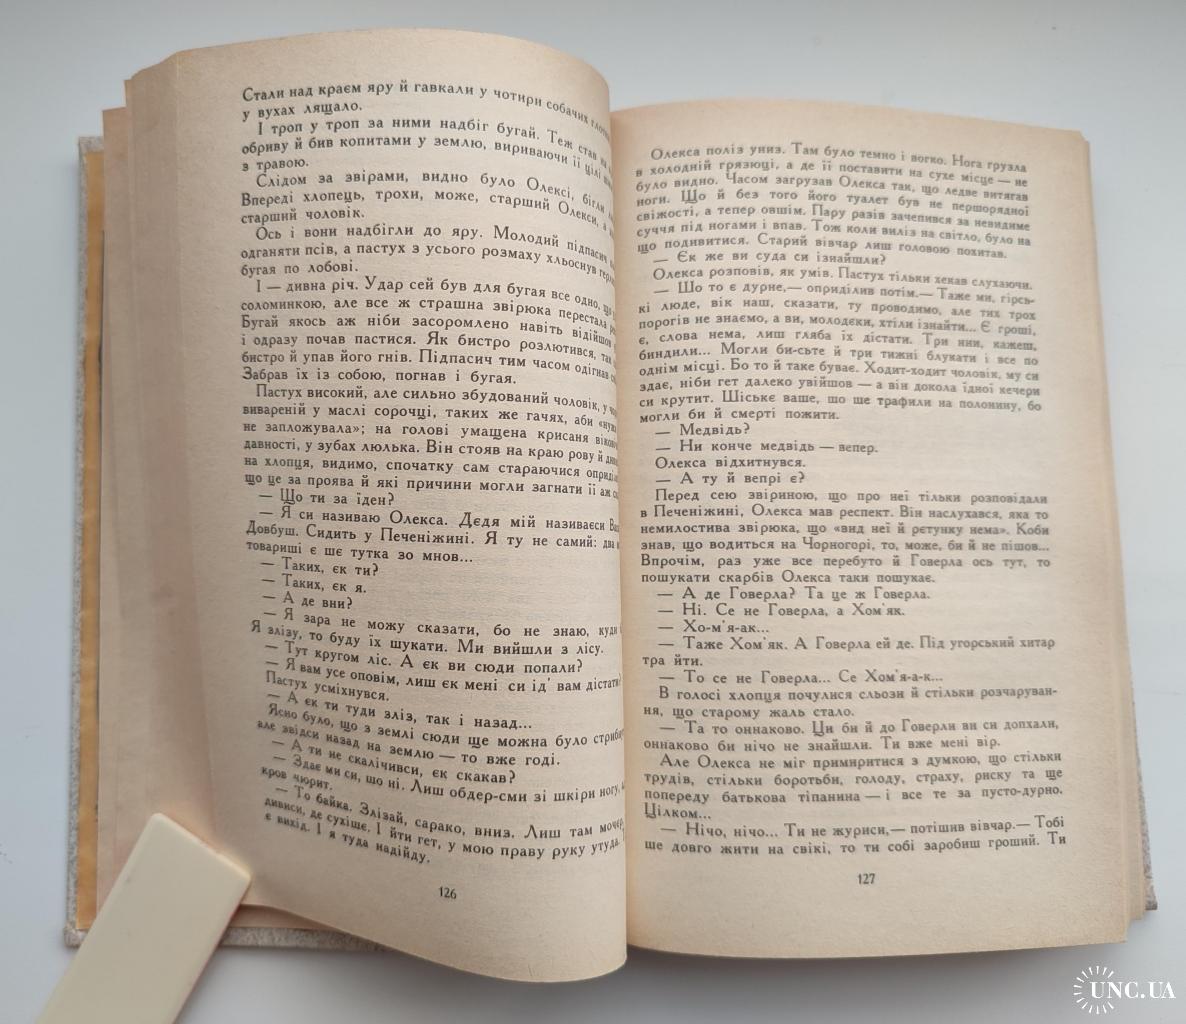 Стали над краєм яру й гавкали у чотири собачих
у вухах лящало.
І троп у троп за ними надбіг бугай. Теж став на
обриву й бив копитами у землю, вириваючи її цілі
з травою.
Слідом за звірами, видно було Олексі, бігли
Впереді хлопець, трохи, може, старший Олекси, а
старший чоловік.
Ось і вони надбігли до яру. Молодий підпасич
одганяти псів, а пастух з усього розмаху хльоснув
бугая по лобові.
І — дивна річ. Удар сей був для бугая все одно, що
соломинкою, але все ж страшна звірюка перестала
Бугай якось аж ніби засоромлено навіть відійшов
і одразу почав пастися. Як бистро розлютився, так
бистро й упав його гнів. Підпасич тим часом одігнав
Забрав їх із собою, погнав і бугая.
Пастух високий, але сильно збудований чоловік, у
вивареній у маслі сорочці, таких же гачях, аби
не запложувала»; на голові умащена крисаня
давності, у зубах люлька. Він стояв на краю рову й
на хлопця, видимо, спочатку сам стараючися
що це за проява й які причини могли загнати її аж
— Що ти за їден?
— Я си називаю Олекса. Дєдя мій називаєси
Довбуш. Сидить у Печеніжині. Я ту не самий: два
товариші є шє тутка зо мнов...
— Таких, єк ти?
— Таких, єк я.
— А де вни?
— Я зара не можу сказати, бо не знаю, куди
Я злізу, то буду їх шукати. Ми вийшли з лісу.
— Тут кругом ліс. А єк ви сюди попали?
— Я вам усе оповім, лиш єк мені си ід' вам дістати?
Пастух усміхнувся.
— А єк ти туди зліз, так і назад...
Ясно було, що з землі сюди ще можна було
але звідси назад на землю — то вже годі.
— А ти не скалічивси, єк скакав?
— Здає ми си, що ні. Лиш обдер-сми зі шкіри ногу,
кров чюрит.
— То байка. Злізай, сарако, вниз. Лиш там
дивиси, де сухіше. І йти гет, у мою праву руку утуда.
є вихід. І я туда надійду.
126
Олекса поліз униз. Там було темно і вогко. Нога грузла
в холодній грязюці, а де її поставити на сухе місце — не
було видно. Часом загрузав Олекса так, що ледве витягав
ноги. Що й без того його туалет був не першорядної
свіжості, а тепер овшім. Пару разів зачепився за невидиме
суччя під ногами і впав. Тож коли виліз на світло, було на
що подивитися. Старий вівчар лиш головою похитав.
— Єк же ви суда си ізнайшли?
Олекса розповів, як умів. Пастух тільки хекав слухаючи.
— Шо то є дурне,— оприділив потім.— Таже ми, гірсь-
кі люде, вік наш, сказати, ту проводимо, але тих трох
порогів не знаємо, а ви, молодєки, хтіли ізнайти... Є гроші,
є, слова нема, лиш гляба їх дістати. Три нни, кажеш,
биндили... Могли би-сьте й три тижні блукати і все по
однім місці. Бо то й таке буває. Ходит-ходит чоловік, му си
здає, ніби гет далеко увійшов — а він докола їдної кечери
си крутит. Шіськє ваше, шо ше трафили на полонину, бо
могли би й смерті пожити.
— Медвідь?
— Ни конче медвідь — вепер.
Олекса відхитнувся.
— А ту й вепрі є?
Перед сею звіриною, що про неї тільки розповідали
в Печеніжині, Олекса мав респект. Він наслухався, яка то
немилостива звірюка, що «вид неї й рєтунку нема». Коби
знав, що водиться на Чорногорі, то, може, би й не пішов...
Впрочім, раз уже все перебуто й Говерла ось тут, то
пошукати скарбів Олекса таки пошукає.
— А де Говерла? Та це ж Говерла.
— Ні. Се не Говерла, а Хом'як.
— Хо-м'я-ак...
— Таже Хом'як. А Говерла ей де. Під угорський хитар
тра йти.
— То се не Говерла... Се Хом'я-а-к...
В голосі хлопця почулися сльози й стільки розчаруван-
ня, що старому жаль стало.
— Та то оннаково. Ци би й до Говерли ви си допхали,
оннаково би нічо не знайшли. Ти вже мені вір.
Але Олекса не міг примиритися з думкою, що стільки
трудів, стільки боротьби, голоду, страху, риску та ще
попереду батькова тіпанина — і все те за пусто-дурно.
Цілком...
— Нічо, нічо... Ти не журиси,— потішив вівчар.— Тобі
ше довго жити на свікі, то ти собі заробиш гроший. Ти
127
UNC.UA